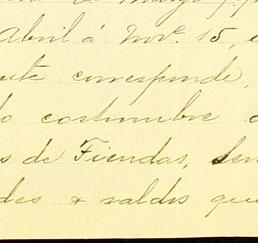 Abril á Nov.e 15,
corresponde,
do costumbre
s de Tiendas, sen
des & saldos que